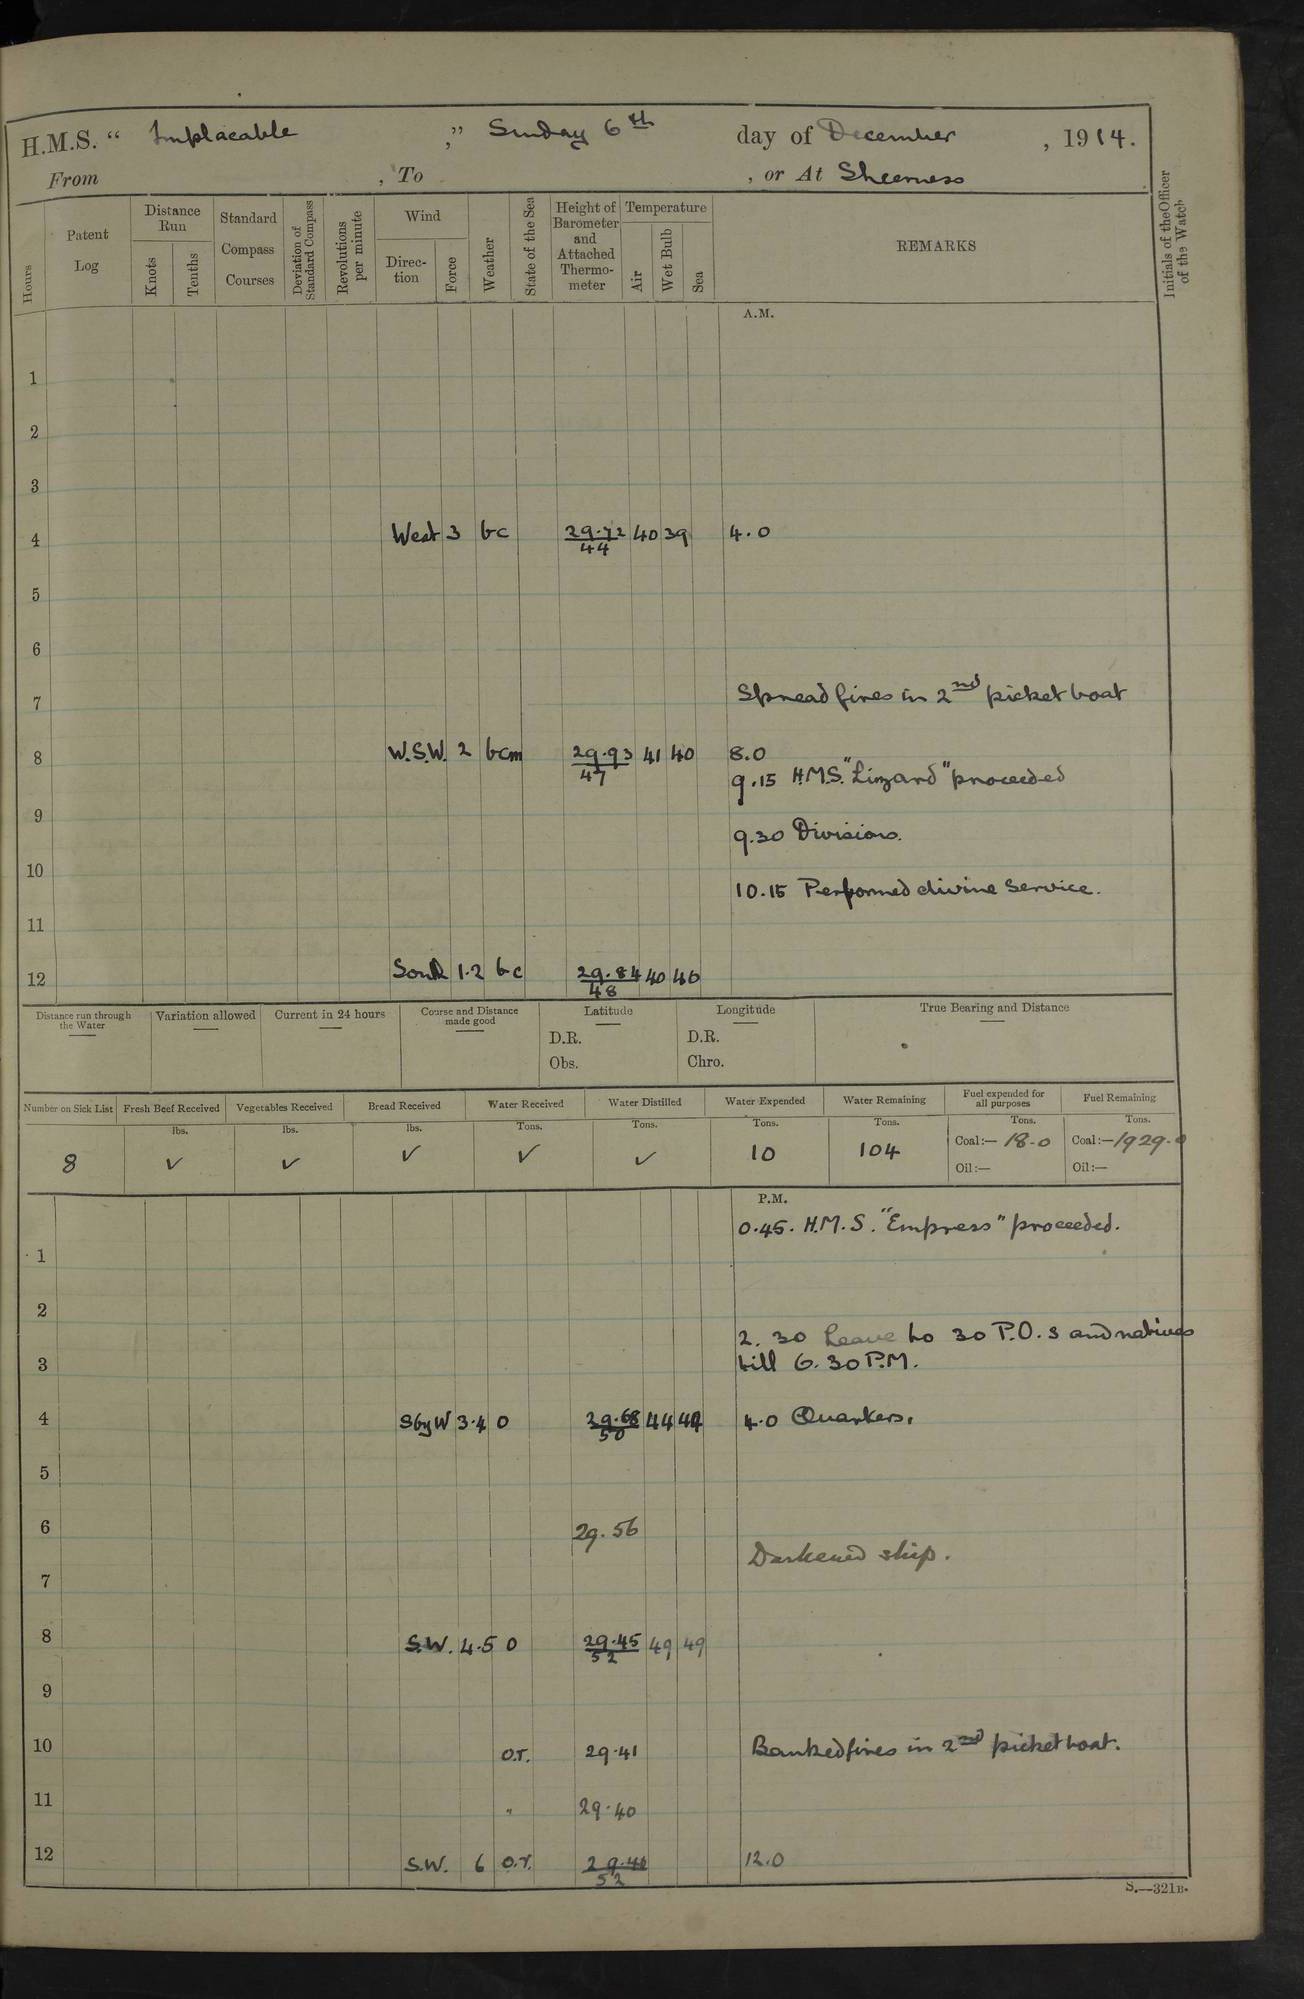 H.M.S. “ Implacable ,” Sunday 6th day of December , 1914.
From , To , or At Sheerness
Hours
Patent Log
Distance Run
Knots
Tenths
Standard Compass Courses
Deviation of Standard Compass
Revolutions per minute
Wind
Direc-tion
Force
Weather
State of the Sea
Height of Barometer and Attached Thermo-meter
Temperature
Air
Wet Bulb
Sea
REMARKS
Initials of the Officer of the Watch
A.M.
1
2
3
4 West 3 bc 29.72 40 39 4.0
44
5
6
7 Spread fires in 2nd picket boat
8 W.S.W. 2 bcm 29.93 41 40 8.0
47
9.15 H.M.S. "Lizard" proceeded
9
9.30 Divisions.
10
10.15 Performed divine Service.
11
12 South 1.2 bc 29.84 40 40
48
Distance run through the Water
Variation allowed
Current in 24 hours
Course and Distance made good
Latitude
D.R.
Obs.
Longitude
D.R.
Chro.
True Bearing and Distance
Number on Sick List Fresh Beef Received Vegetables Received Bread Received Water Received Water Distilled Water Expended Water Remaining Fuel expended for all purposes Fuel Remaining
lbs. lbs. lbs. Tons. Tons. Tons. Tons. Tons. Tons.
8 ✓ ✓ ✓ ✓ ✓ 10 104 Coal:— 18.0 Coal:—1929.0
Oil:— Oil:—
P.M.
0.45. H.M.S. "Empress" proceeded.
1
2
2.30 Leave to 30 P.O.s and natives
3 till 6.30 P.M.
4 SbyW 3.4 0 29.68 44 44 4.0 Quarters.
50
5
6 29.56
Darkened ship.
7
8 S.W. 4.5 0 29.45 49 49
52
9
10 o.r. 29.41 Banked fires in 2nd picket boat.
11 " 29.40
12 S.W. 6 o.r. 29.40 12.0
52
S.—321B.